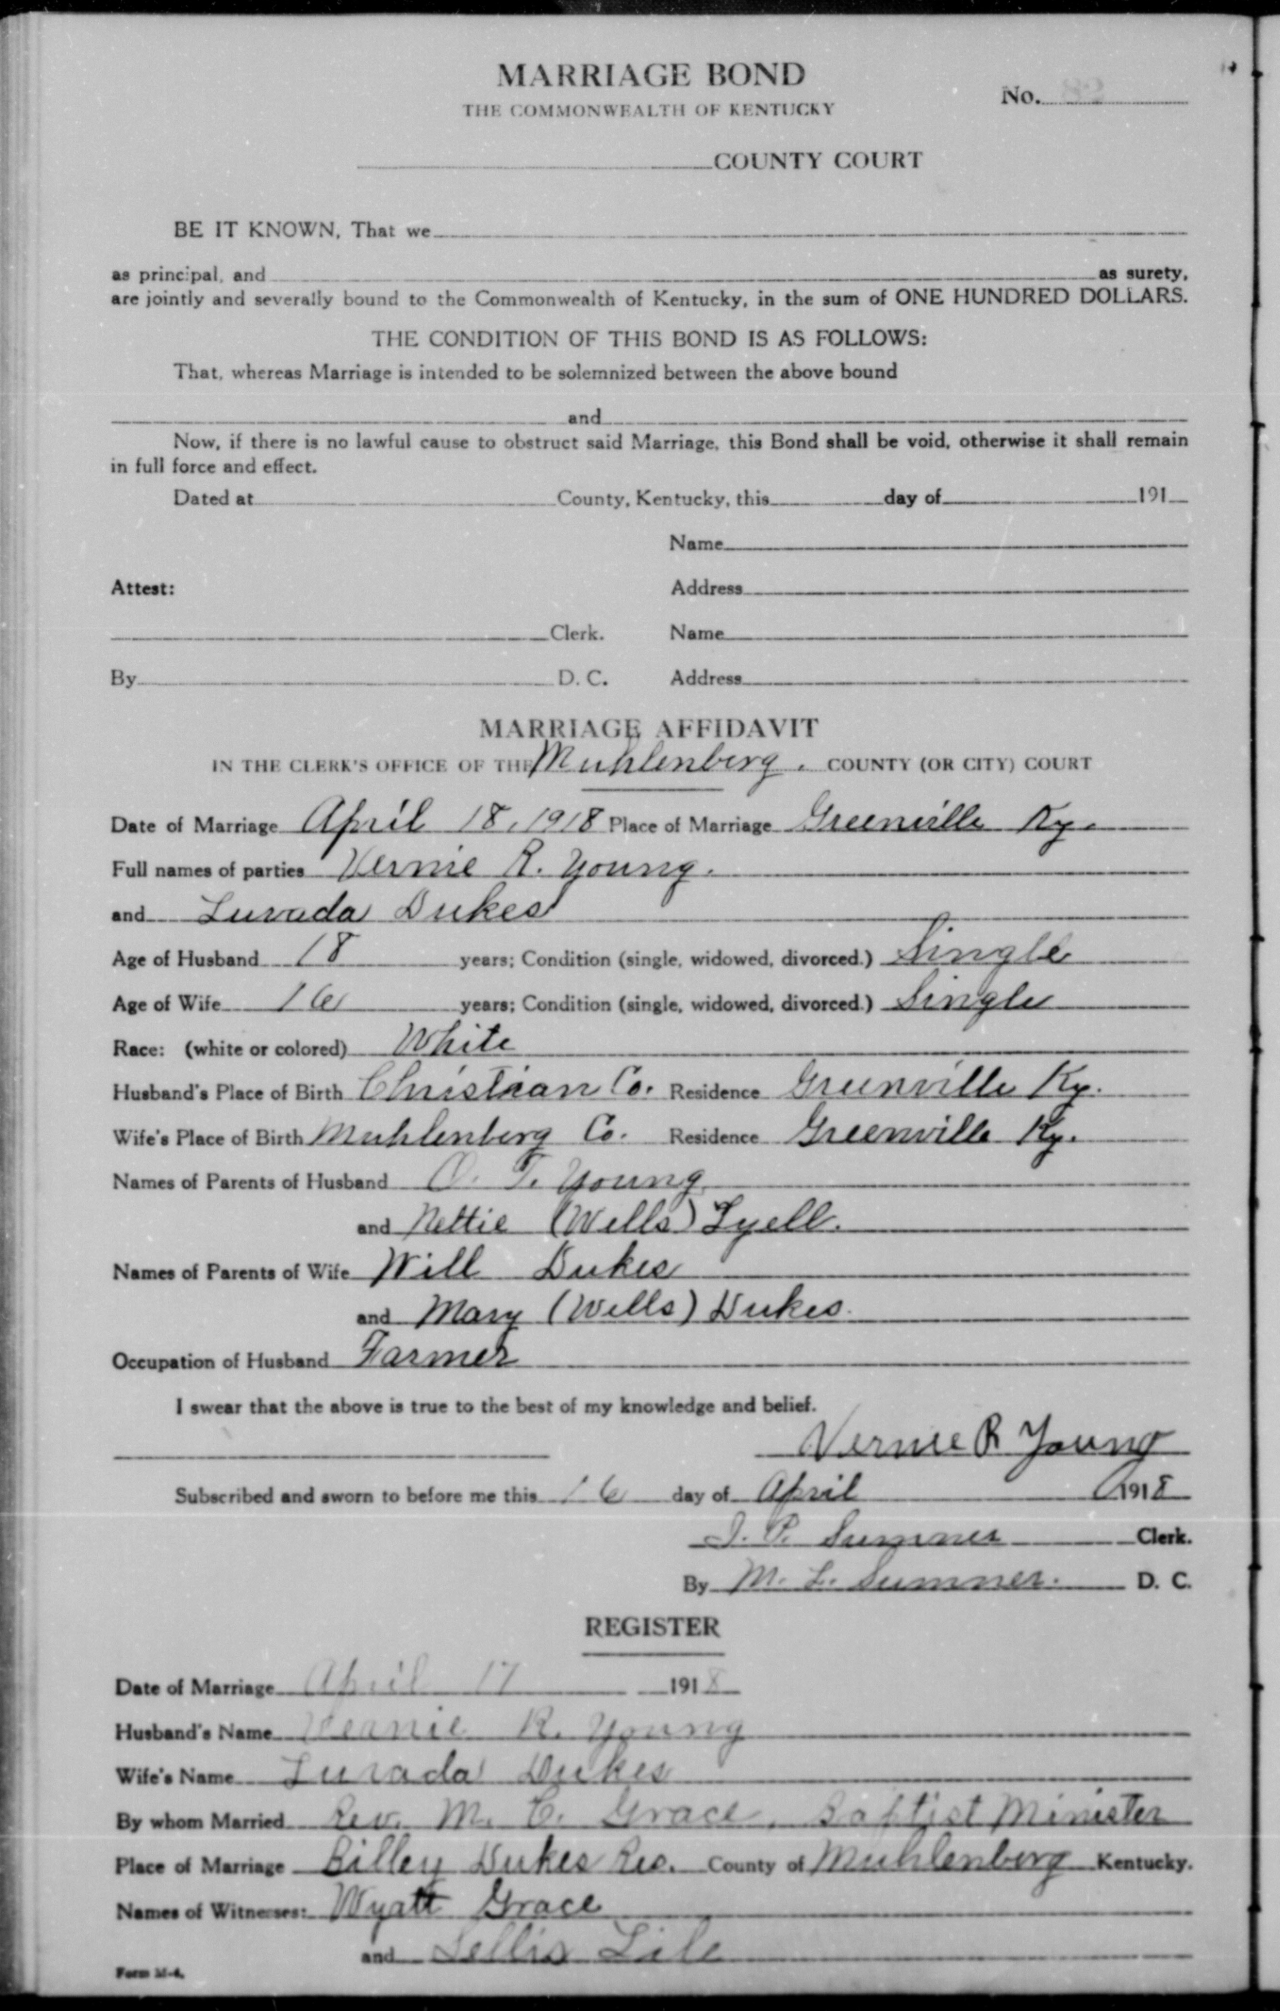 MARRIAGE BOND
THE COMMONWEALTH OF KENTUCKY
No.
COUNTY COURT
BE IT KNOWN, That we
as principal, and as surety,
are jointly and severally bound to the Commonwealth of Kentucky, in the sum of ONE HUNDRED DOLLARS.
THE CONDITION OF THIS BOND IS AS FOLLOWS:
That, whereas Marriage is intended to be solemnized between the above bound
and
Now, if there is no lawful cause to obstruct said Marriage, this Bond shall be void, otherwise it shall remain
in full force and effect.
Dated at County, Kentucky, this day of 191
Name
Attest: Address
Clerk. Name
By D. C. Address
MARRIAGE AFFIDAVIT
IN THE CLERK'S OFFICE OF THE Muhlenberg. COUNTY (OR CITY) COURT
Date of Marriage April 18, 1918 Place of Marriage Greenville Ky.
Full names of parties Vernie R. Young.
and Luvada Dukes
Age of Husband 18 years; Condition (single, widowed, divorced.) Single
Age of Wife 16 years; Condition (single, widowed, divorced.) Single
Race: (white or colored) White
Husband's Place of Birth Christian Co. Residence Greenville Ky.
Wife's Place of Birth Muhlenberg Co. Residence Greenville Ky.
Names of Parents of Husband O. T. Young
and Nettie (Wells) Lyell.
Names of Parents of Wife Will Dukes
and Mary (Wells) Dukes.
Occupation of Husband Farmer
I swear that the above is true to the best of my knowledge and belief.
Vernie R Young
Subscribed and sworn to before me this 16 day of April 1918
J. P. Sumner Clerk.
By M. L. Sumner. D. C.
REGISTER
Date of Marriage April 17 1918
Husband's Name Vernie R. Young
Wife's Name Luvada Dukes
By whom Married Rev. M. C. Grace, Baptist Minister
Place of Marriage Billey Dukes Res. County of Muhlenberg Kentucky.
Names of Witnesses: Wyatt Grace
and Lile
Form M-4.